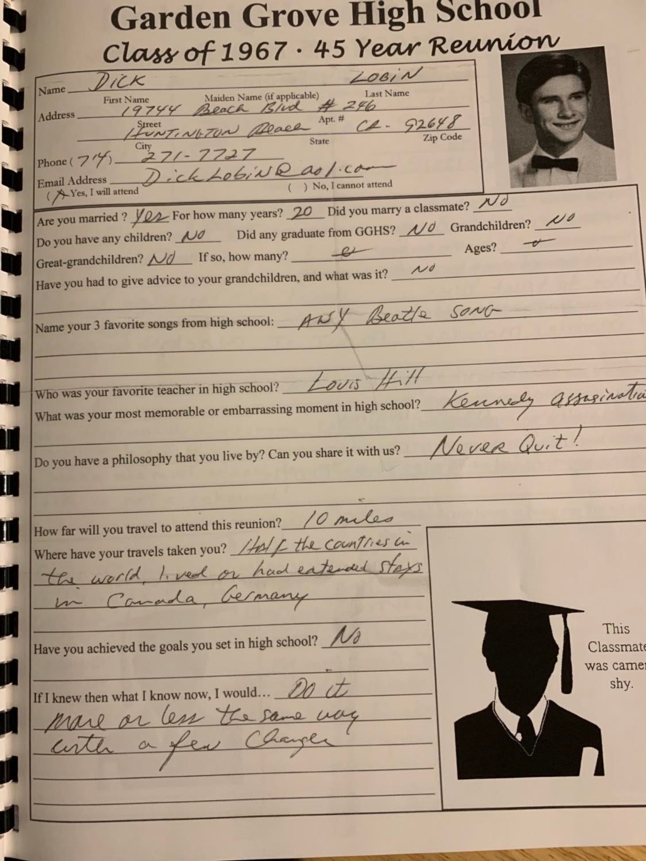 Garden Grove High School
Class of 1967 · 45 Year Reunion
Name DICK LOBIN
First Name Maiden Name (if applicable) Last Name
Address 19744 Beach Blvd # 246
Street Apt. #
HUNTINGTON Beach CA- 92648
City State Zip Code
Phone (714) 271-7727
Email Address DickLobin@aol.com
Yes, I will attend ( ) No, I cannot attend
Are you married ? Yes For how many years? 20 Did you marry a classmate? NO
Do you have any children? NO Did any graduate from GGHS? NO Grandchildren? NO
Great-grandchildren? NO If so, how many? Ages?
Have you had to give advice to your grandchildren, and what was it? NO
Name your 3 favorite songs from high school: ANY Beatle SONG
Who was your favorite teacher in high school? Louis Hill
What was your most memorable or embarrassing moment in high school? Kennedy assasinatio
Do you have a philosophy that you live by? Can you share it with us? Never Quit!
How far will you travel to attend this reunion? 10 miles
Where have your travels taken you? Half the countries in
the world, lived or had extended stays
in Canada, Germany
Have you achieved the goals you set in high school? No
If I knew then what I know now, I would... Do it
more or less the same way
with a few changes
This
Classmate
was camer
shy.